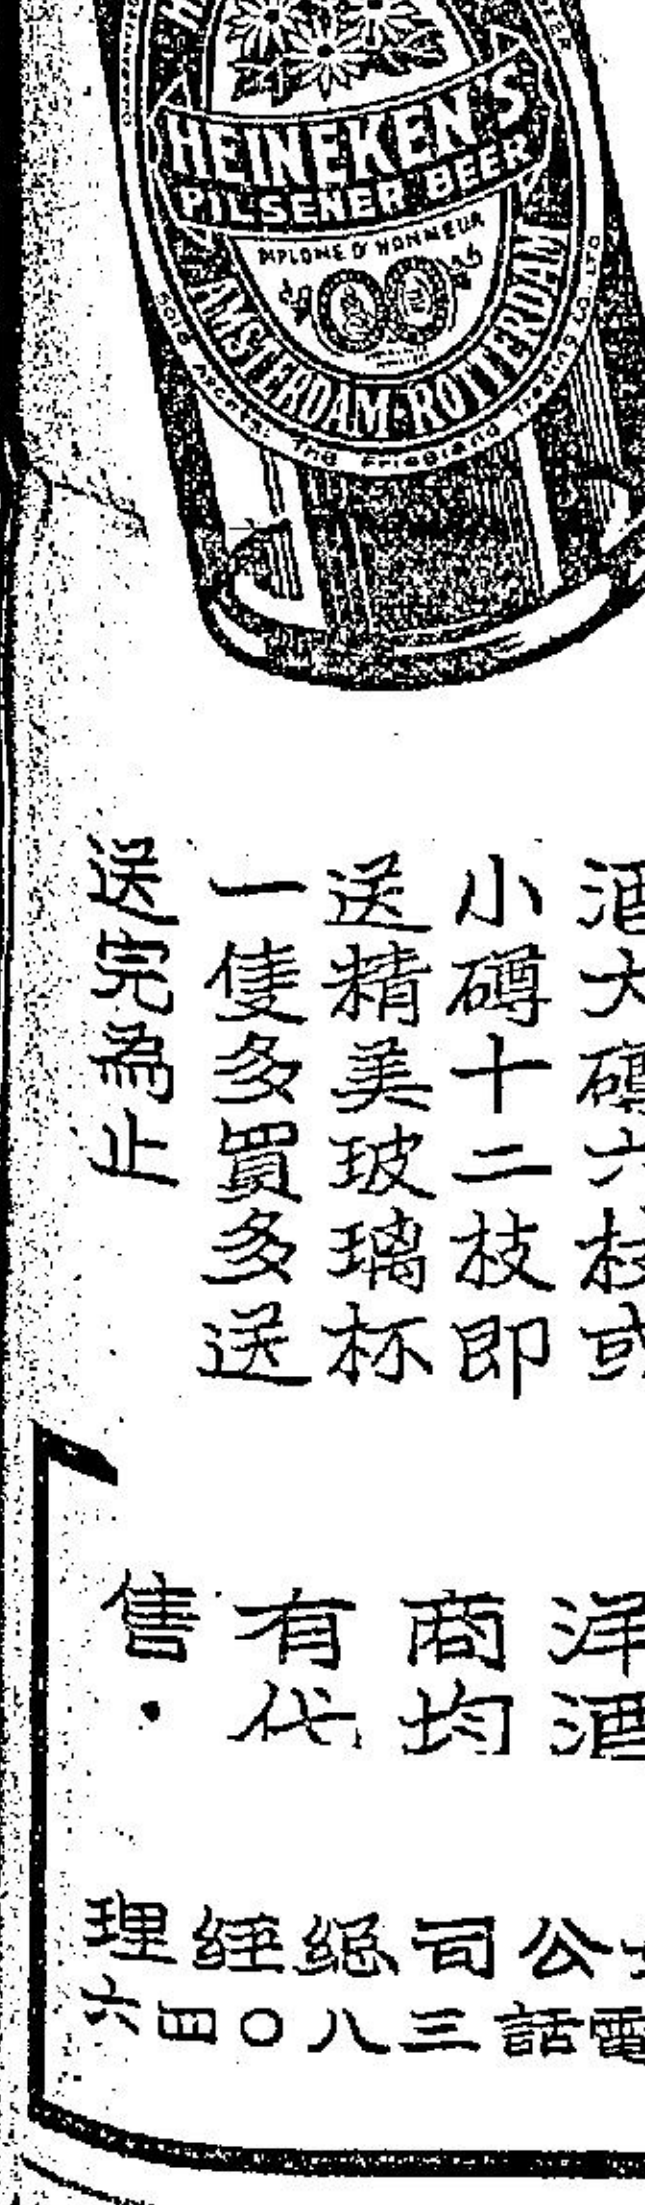 HEINEKEN'S
PILSENER BEER
DIPLOME D'HONNEUR
AMSTERDAM-ROTTERDAM
SOLE AGENTS: The Friesland Trading Co. LTD
酒大磚六枝或
小磚十二枝即
送精美玻璃杯
一隻多買多送
送完為止
洋酒
商均
有代
售·
公司總經理
電話三八〇四六